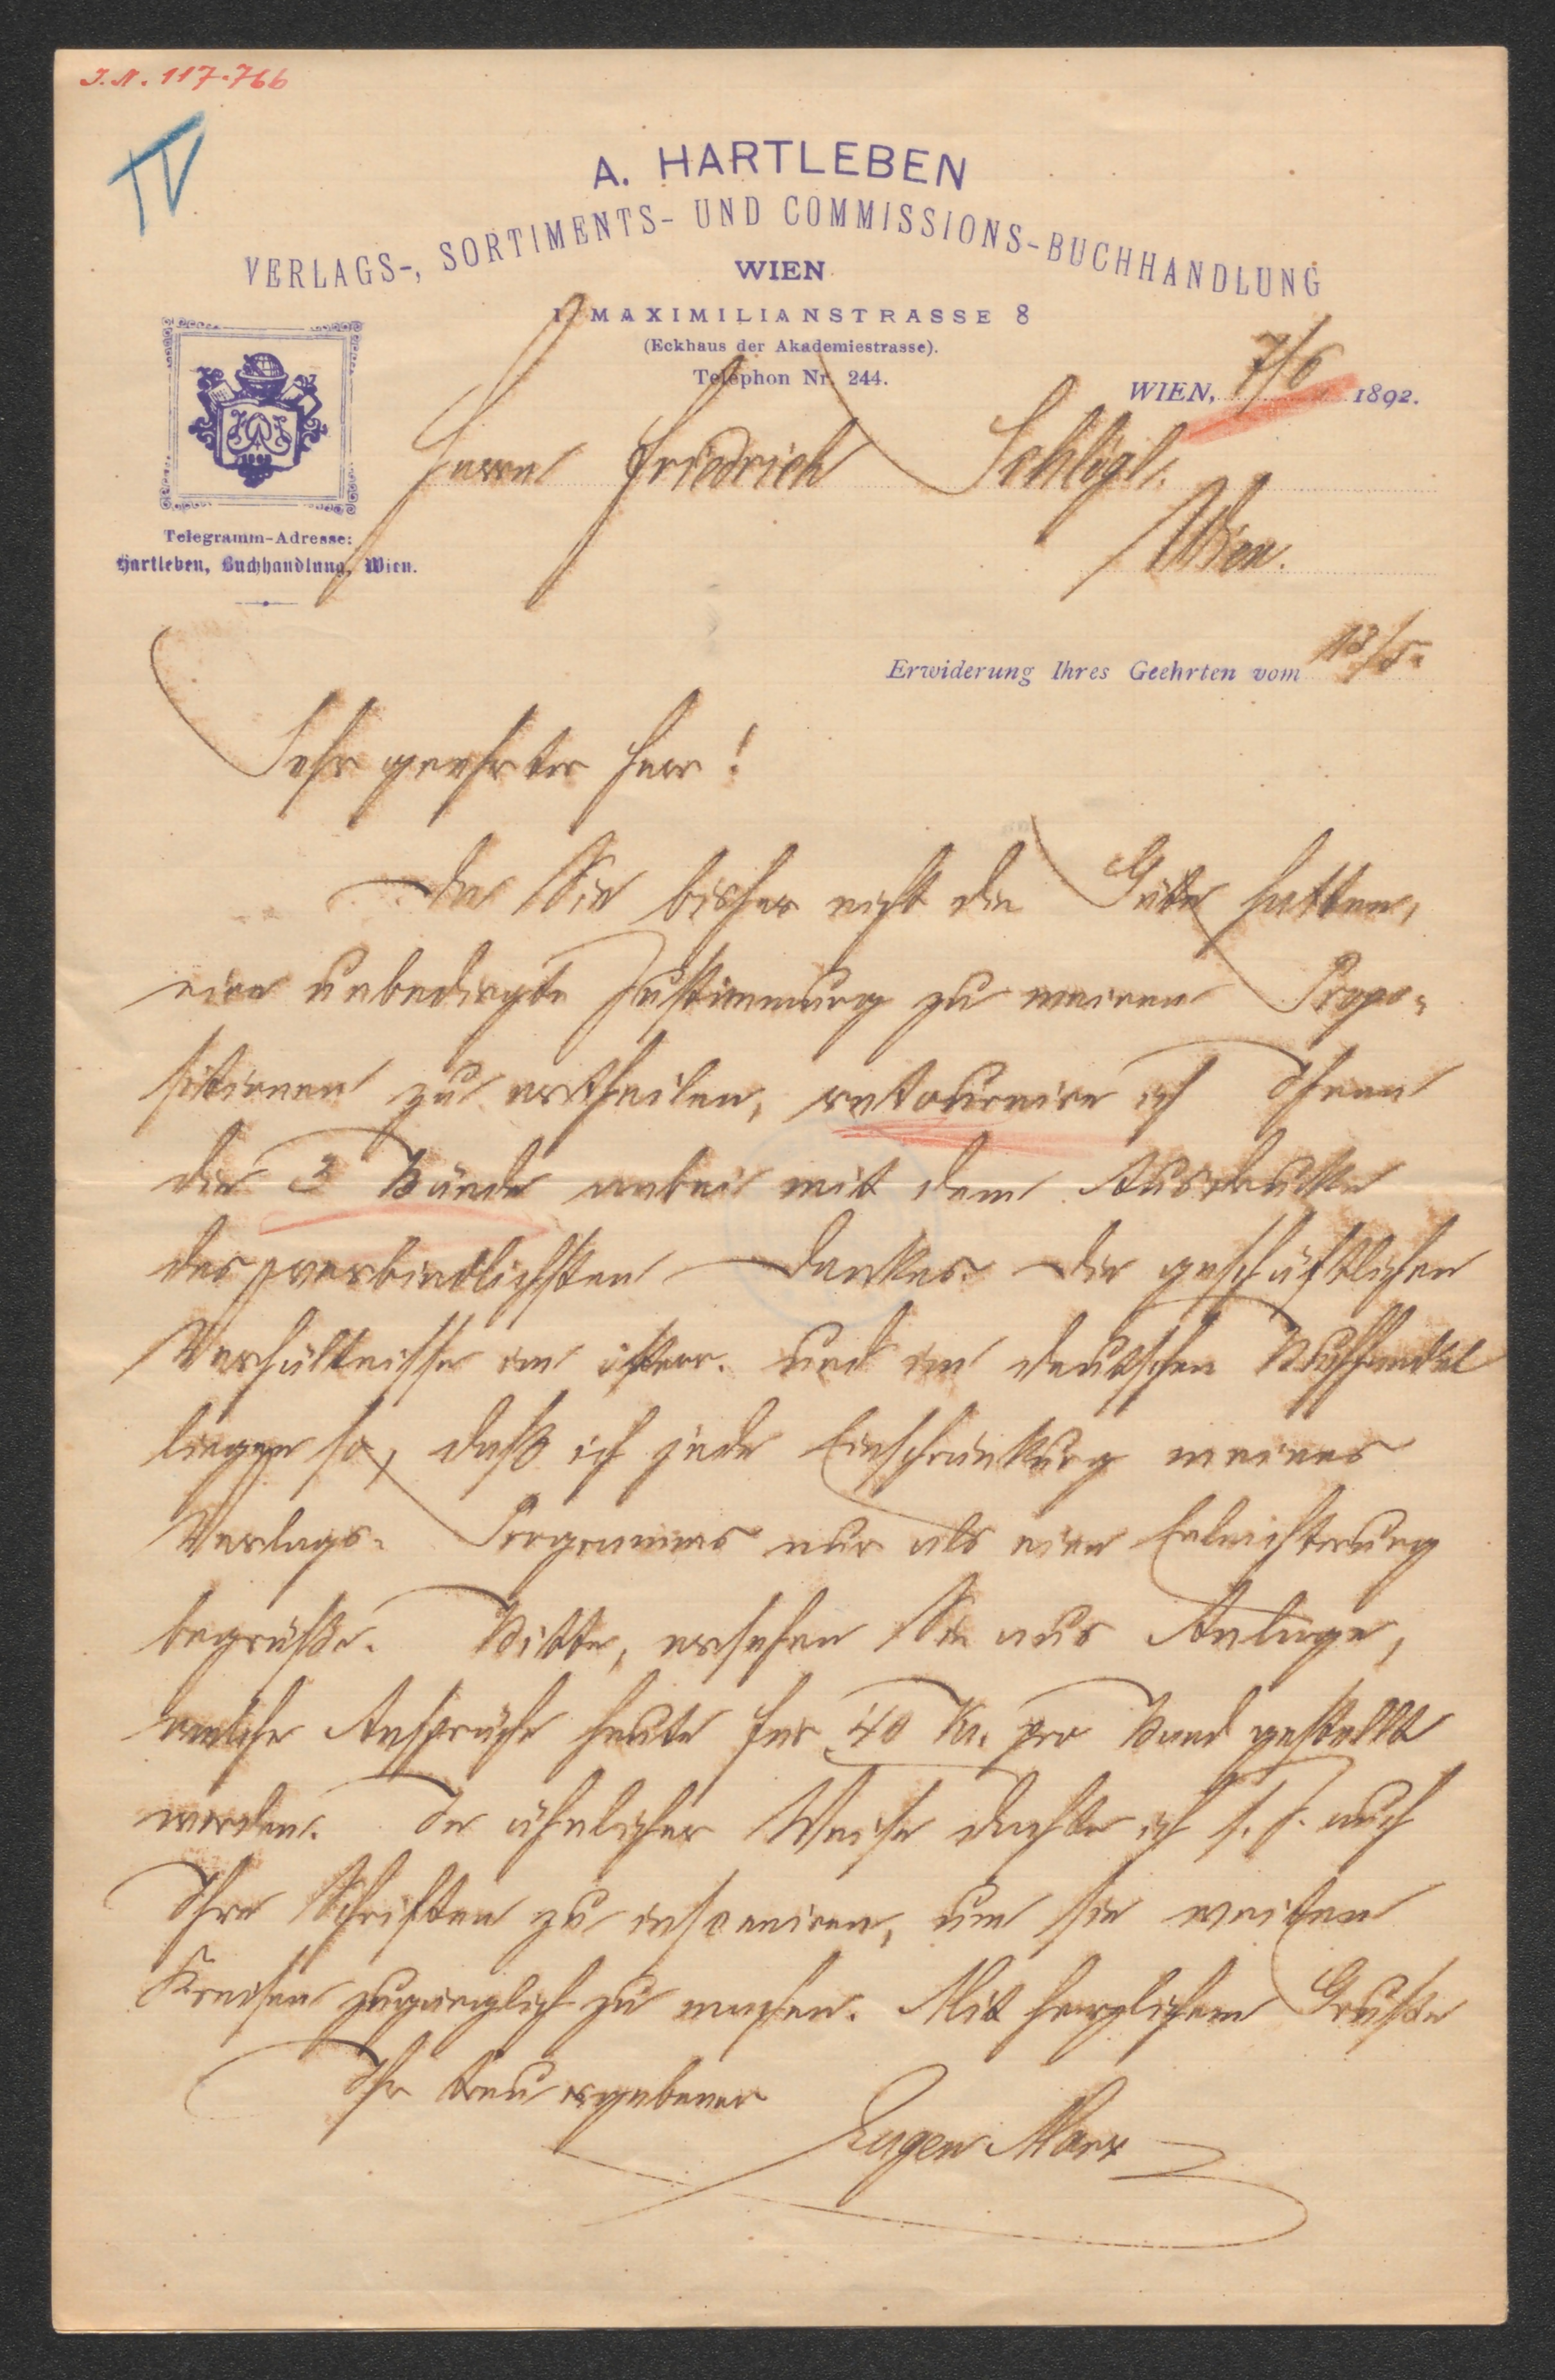 I.N. 117.766
IV
A. HARTLEBEN
VERLAGS-, SORTIMENTS- UND COMMISSIONS-BUCHHANDLUNG
WIEN
I. MAXIMILIANSTRASSE 8
(Eckhaus der Akademiestrasse).
Telephon Nr. 244.
WIEN, 7/6 1892.
Herrn Friedrich Schlögl.
Wien.
Telegramm-Adresse:
Hartleben, Buchhandlung, Wien.
Erwiderung Ihres Geehrten vom 18/5.
Sehr geehrter Herr!
Da Sie bisher nicht die Güte hatten,
eine unbedingte Zustimmung zu meinen Propo-
sitionen zu ertheilen, retournire ich Ihnen
die 3 Bände anbei mit dem Ausdrucke
des verbindlichsten Dankes. Die geschäftlichen
Verhältnisse im österr. und im deutschen Buchhandel
liegen so, daß ich jede Einschränkung meines
Verlags-Programms nur als eine Erleichterung
begrüße. Bitte, ersehen Sie aus Anlage,
welche Ansprüche heute für 40 Kr. pro Band gestellt
werden. In ähnlicher Weise dachte ich s. Z. auch
Ihre Schriften zu insceniren, um sie weiten
Kreisen zugänglich zu machen. Mit herzlichem Gruße
Ihr treu ergebener
Eugen Marx